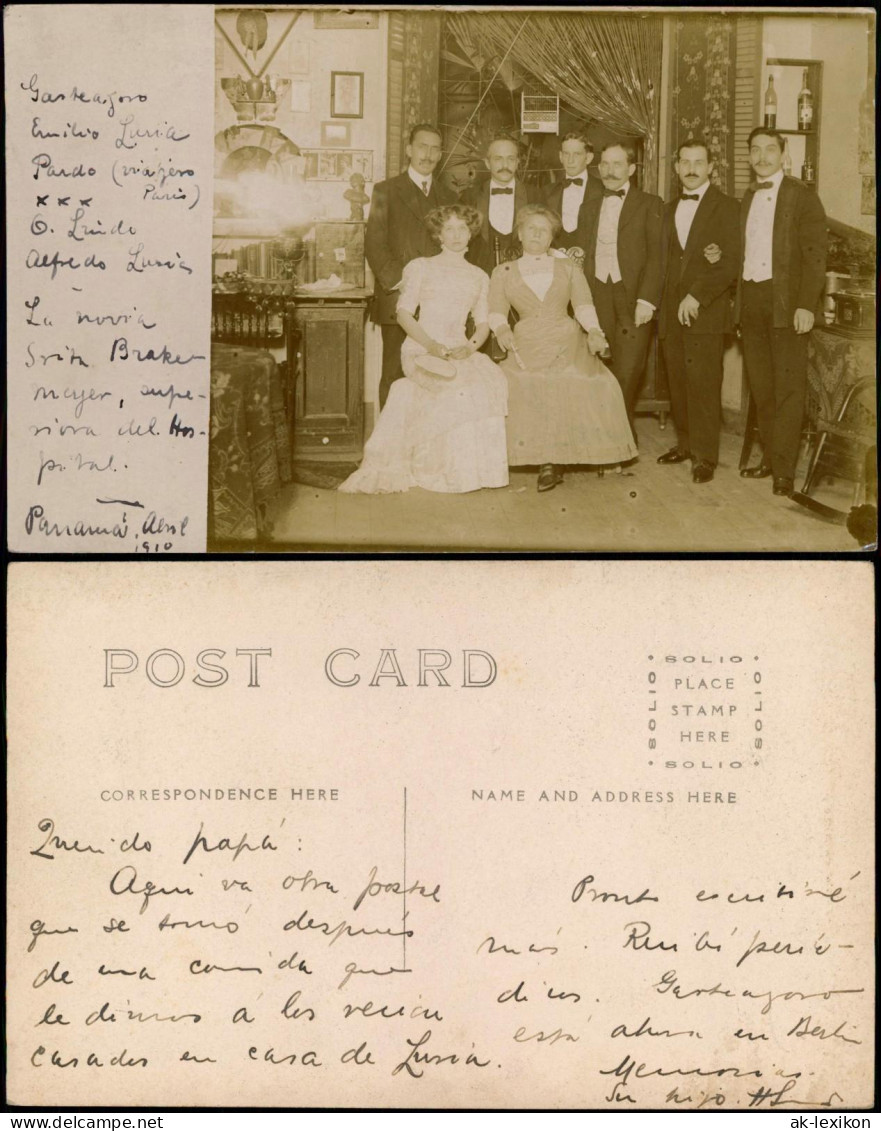 Gasteagoro
Emilio Lusia
Pardo (viajero
Paris)
x x x
O. Lindo
Alfredo Lusia
La novia
Srita Brake-
meyer, supe-
riora del Hos-
pital.
Panamá, Abril
1910
POST CARD
SOLIO
PLACE
STAMP
HERE
SOLIO
SOLIO
SOLIO
CORRESPONDENCE HERE
NAME AND ADDRESS HERE
Querido papá:
Aqui va otra postal
que se tomó después
de una comida que
le dimos á los recien
casados en casa de Lusia.
Pronto escribiré
más. Recibí perió-
dicos. Gasteagoro
está ahora en Berlin
Memorias.
Su hijo. H
ak-lexikon
ak-lexikon.com